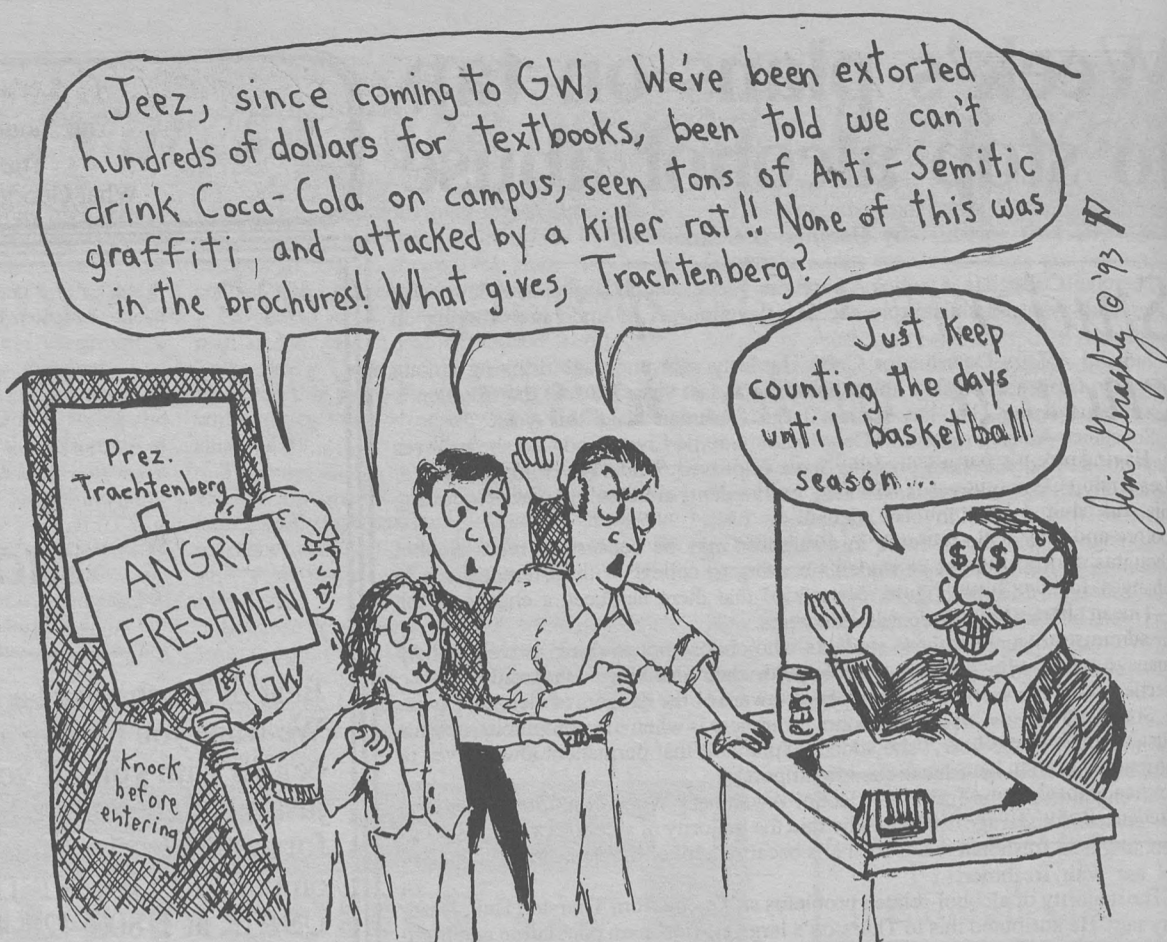 Jeez, since coming to GW, We've been extorted
hundreds of dollars for textbooks, been told we can't
drink Coca-Cola on campus, seen tons of Anti-Semitic
graffiti, and attacked by a killer rat!! None of this was
in the brochures! What gives, Trachtenberg?
Just keep
counting the days
until basketball
season....
Jim Geraghty @ '93
Prez.
Trachtenberg
ANGRY
FRESHMEN
GW
Knock
before
entering
PEPSI
$ $